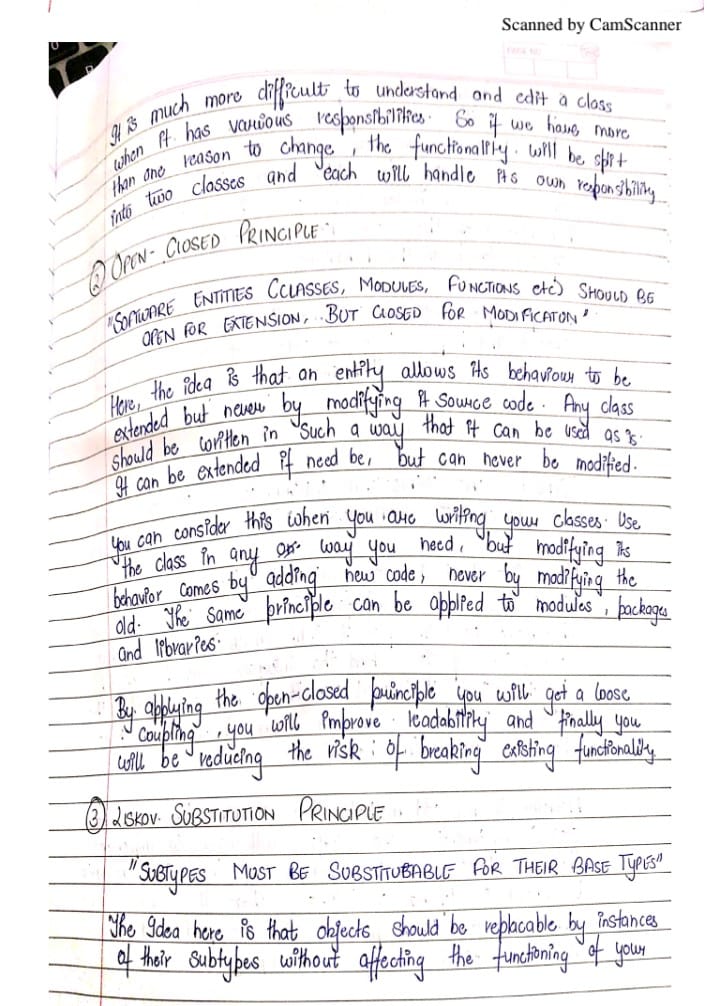 Scanned by CamScanner
It is much more difficult to understand and edit a class
when it has various responsibilities. So if we have more
than one reason to change, the functionality will be split
into two classes and each will handle its own responsibility
② OPEN-CLOSED PRINCIPLE
"SOFTWARE ENTITIES (CLASSES, MODULES, FUNCTIONS etc) SHOULD BE
OPEN FOR EXTENSION, BUT CLOSED FOR MODIFICATON"
Here, the idea is that an entity allows its behaviour to be
extended but never by modifying it source code. Any class
should be written in such a way that it can be used as is.
It can be extended if need be, but can never be modified.
You can consider this when you are writing your classes. Use
the class in any way you need, but modifying its
behavior comes by adding new code, never by modifying the
old. The same principle can be applied to modules, packages
and libraries.
By applying the open-closed principle you will get a loose
coupling, you will improve leadability and finally you
will be reducing the risk of breaking existing functionality
③ LISKOV SUBSTITUTION PRINCIPLE
"SUBTYPES MUST BE SUBSTITUBABLE FOR THEIR BASE TYPES"
The Idea here is that objects should be replacable by instances
of their subtypes without affecting the functioning of your